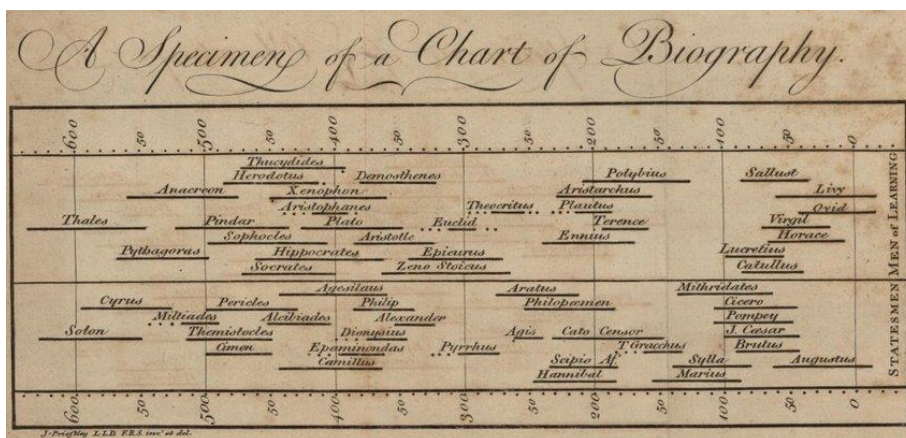 A Specimen of a Chart of Biography.
600 50 500 50 400 50 300 50 200 50 100 50 0
Thucydides
Herodotus Demosthenes Polybius Sallust
Anacreon Xenophon Aristarchus Livy
Aristophanes Theocritus Plautus Ovid
Thales Pindar Plato Euclid Terence Virgil
Sophocles Aristotle Ennius Horace
Pythagoras Hippocrates Epicurus Lucretius
Socrates Zeno Stoicus Catullus
MEN of LEARNING
Agesilaus Aratus Mithridates
Cyrus Pericles Philip Philopœmen Cicero
Miltiades Alcibiades Alexander Pompey
Solon Themistocles Dionysius Agis Cato Censor J. Cæsar
Cimon Epaminondas Pyrrhus T Gracchus Brutus
Camillus Scipio Af. Sylla Augustus
Hannibal Marius
STATESMEN
600 50 500 50 400 50 300 50 200 50 100 50 0
J. Priestley L.L.D. F.R.S. inv.t et del.